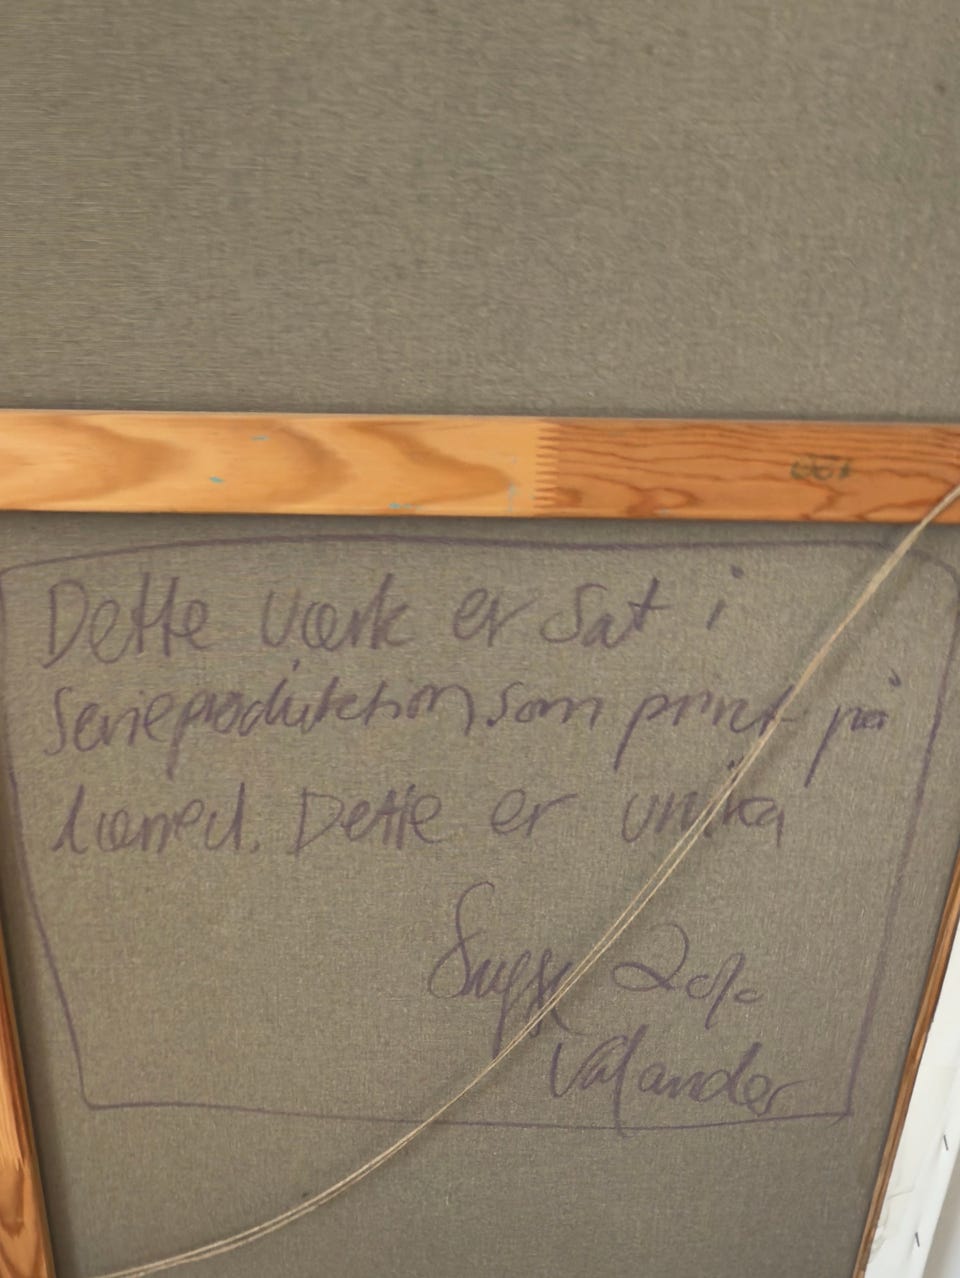 Dette værk er sat i
serieproduktion som print på
lærred. Dette er unika